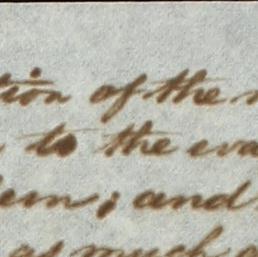 tion of the
to the eva
; and
as much